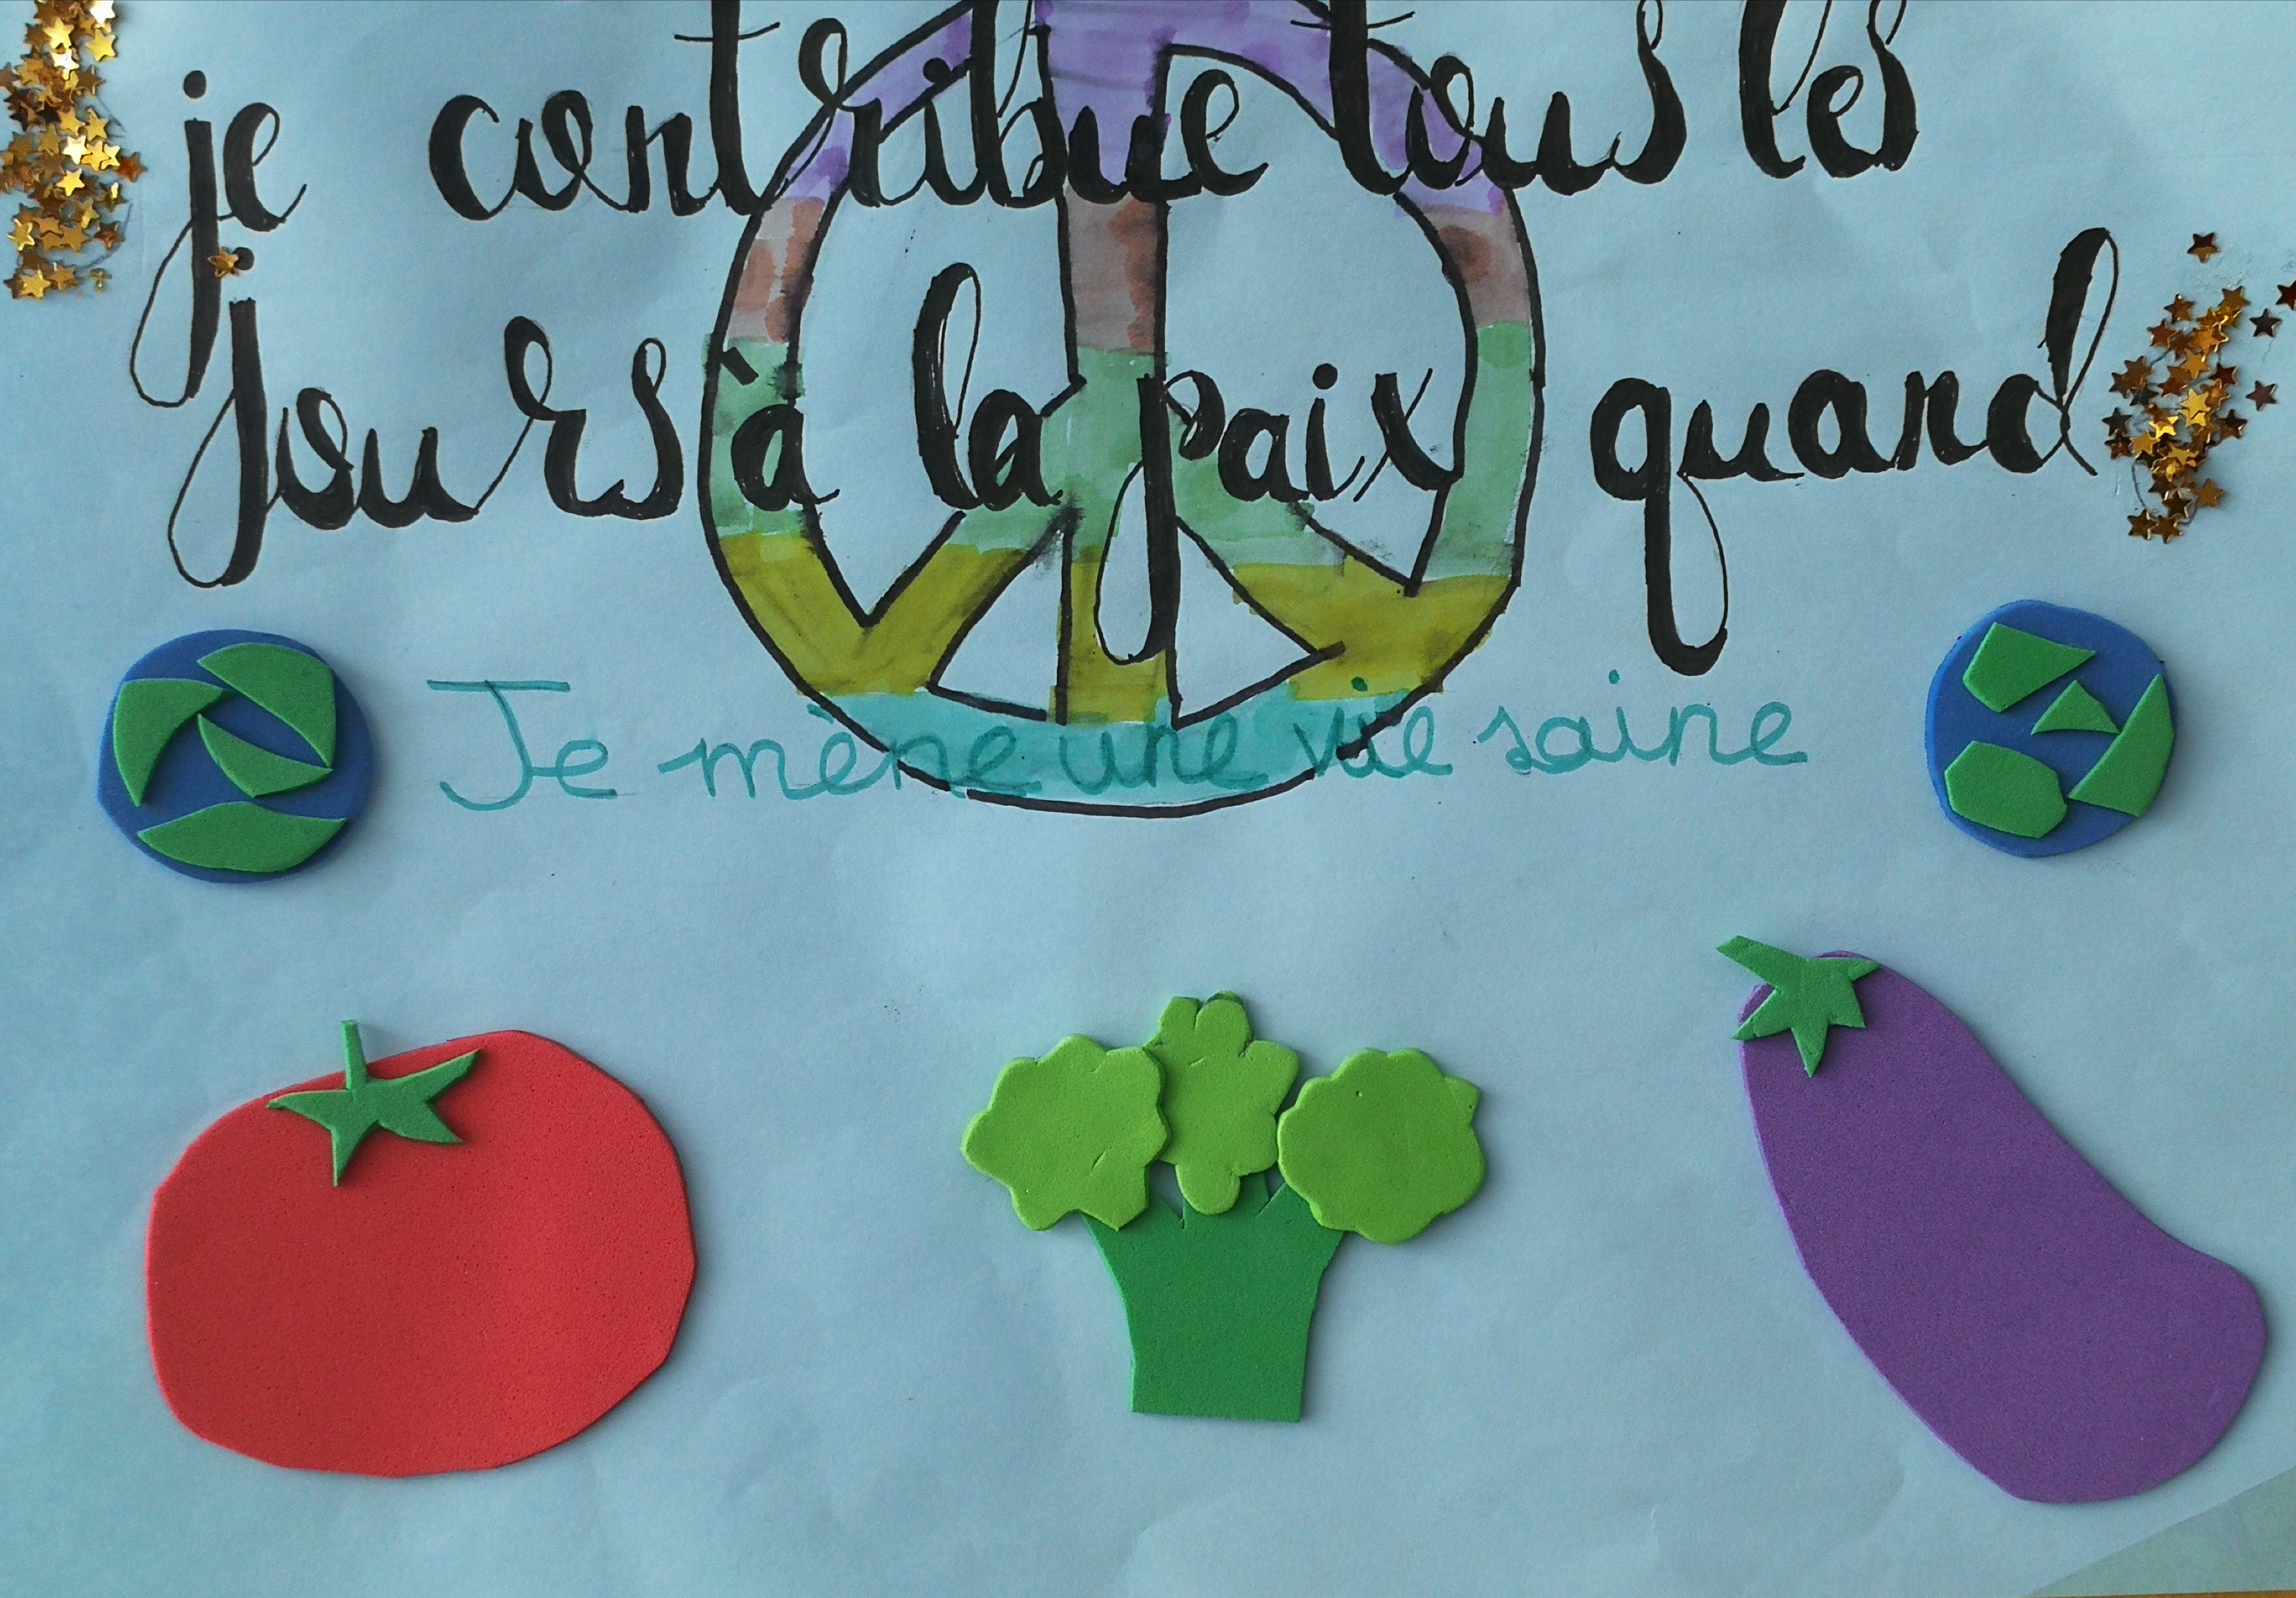 je contribue tous les
jours à la paix quand
Je mène une vie saine